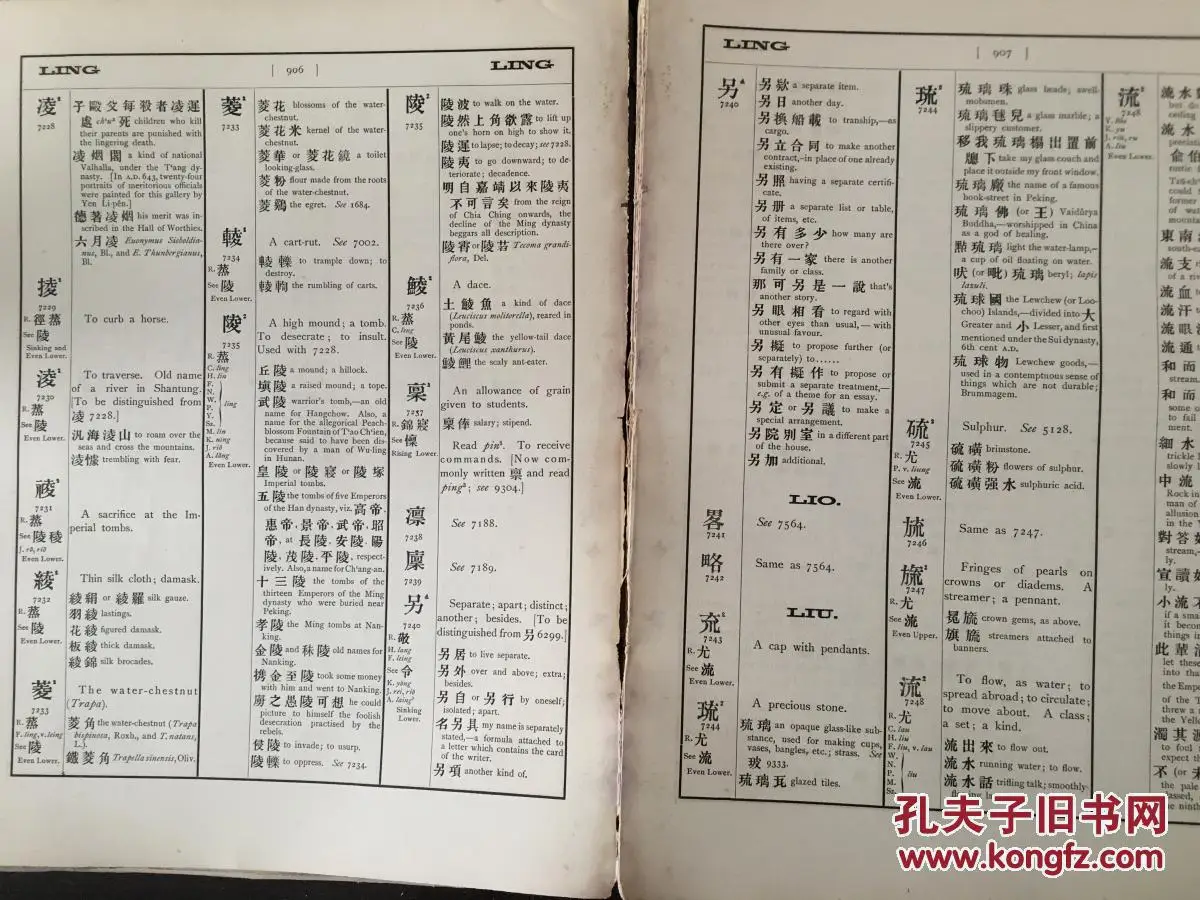 LING
[ 906 ]
LING
凌²
7228
子毆父每殺者凌遲
處 ch'u³ 死 children who kill
their parents are punished with
the lingering death.
凌烟閣 a kind of national
Valhalla, under the T'ang dy-
nasty. [In A.D. 643, twenty-four
portraits of meritorious officials
were painted for this gallery by
Yen Li-pên.]
德著凌烟 his merit was in-
scribed in the Hall of Worthies.
六月凌 Euonymus Sieboldia-
nus, Bl., and E. Thunbergianus,
Bl.
7229
R. 徑蒸
See 陵
Sinking and
Even Lower.
To curb a horse.
淩²
7230
R. 蒸
See 陵
Even Lower.
To traverse. Old name
of a river in Shantung.
[To be distinguished from
凌 7228.]
汎海淩山 to roam over the
seas and cross the mountains.
淩懅 trembling with fear.
祾²
7231
R. 蒸
See 陵稜
J. rō, riō
Even Lower.
A sacrifice at the Im-
perial tombs.
綾²
7232
R. 蒸
See 陵
Even Lower.
Thin silk cloth; damask.
綾絹 or 綾羅 silk gauze.
羽綾 lastings.
花綾 figured damask.
板綾 thick damask.
綾錦 silk brocades.
菱²
7233
R. 蒸
Y. ling, v. leing
See 陵
Even Lower.
The water-chestnut
(Trapa).
菱角 the water-chestnut (Trapa
bispinosa, Roxb., and T. natans,
L.).
鐵菱角 Trapella sinensis, Oliv.
菱²
7233
菱花 blossoms of the water-
chestnut.
菱花米 kernel of the water-
chestnut.
菱華 or 菱花鏡 a toilet
looking-glass.
菱粉 flour made from the roots
of the water-chestnut.
菱鷄 the egret. See 1684.
輘²
7234
R. 蒸
See 陵
Even Lower.
A cart-rut. See 7002.
輘轢 to trample down; to
destroy.
輘輷 the rumbling of carts.
陵²
7235
R. 蒸
C. ling
H. lin
F.
N.
W.
P.
Y.
Sz.
ling
M. lin
K. nŭng
J. riō
A. lăng
Even Lower.
A high mound; a tomb.
To desecrate; to insult.
Used with 7228.
丘陵 a mound; a hillock.
墳陵 a raised mound; a tope.
武陵 warrior's tomb,—an old
name for Hangchow. Also, a
name for the allegorical Peach-
blossom Fountain of T'ao Ch'ien,
because said to have been dis-
covered by a man of Wu-ling
in Hunan.
皇陵 or 陵寢 or 陵塚
Imperial tombs.
五陵 the tombs of five Emperors
of the Han dynasty, viz. 高帝,
惠帝, 景帝, 武帝, 昭
帝, at 長陵, 安陵, 陽
陵, 茂陵, 平陵, respect-
ively. Also, a name for Ch'ang-an.
十三陵 the tombs of the
thirteen Emperors of the Ming
dynasty who were buried near
Peking.
孝陵 the Ming tombs at Nan-
king.
金陵 and 秣陵 old names for
Nanking.
携金至陵 took some money
with him and went to Nanking.
勵之愚陵可想 he could
picture to himself the foolish
desecration practised by the
rebels.
侵陵 to invade; to usurp.
陵轢 to oppress. See 7234.
陵²
7235
陵波 to walk on the water.
陵然上角欲露 to lift up
one's horn on high to show it.
陵遲 to lapse; to decay; see 7228.
陵夷 to go downward; to de-
teriorate; decadence.
明自嘉靖以來陵夷
不可言矣 from the reign
of Chia Ching onwards, the
decline of the Ming dynasty
beggars all description.
陵霄 or 陵苕 Tecoma grandi-
flora, Del.
鯪²
7236
R. 蒸
C. leng
See 陵
Even Lower.
A dace.
土鯪魚 a kind of dace
(Leuciscus molitorella), reared in
ponds.
黃尾鯪 the yellow-tail dace
(Leuciscus xanthurus).
鯪鯉 the scaly ant-eater.
稟³
7237
R. 錦寢
See 懍
Rising Lower.
An allowance of grain
given to students.
稟俸 salary; stipend.
Read pin³. To receive
commands. [Now com-
monly written 禀 and read
ping³; see 9304.]
凛
7238
See 7188.
廩
7239
See 7189.
另⁴
7240
R. 敬
H. lang
F. leing
See 令
K. yŏng
J. rei, riō
A. laing²
Sinking
Lower.
Separate; apart; distinct;
another; besides. [To be
distinguished from 叧 6299.]
另居 to live separate.
另外 over and above; extra;
besides.
另自 or 另行 by oneself;
isolated; apart.
名另具 my name is separately
stated,—a formula attached to
a letter which contains the card
of the writer.
另項 another kind of.
LING
[ 907 ]
另⁴
7240
另欵 a separate item.
另日 another day.
另換船載 to tranship,—as
cargo.
另立合同 to make another
contract,—in place of one already
existing.
另照 having a separate certifi-
cate.
另册 a separate list or table,
of items, etc.
另有多少 how many are
there over?
另有一家 there is another
family or class.
那可另是一說 that's
another story.
另眼相看 to regard with
other eyes than usual,—with
unusual favour.
另擬 to propose further (or
separately) to......
另有擬作 to propose or
submit a separate treatment,—
e.g. of a theme for an essay.
另定 or 另議 to make a
special arrangement.
另院別室 in a different part
of the house.
另加 additional.
LIO.
畧
7241
See 7564.
略
7242
Same as 7564.
LIU.
7243
R. 尤
See 流
Even Lower.
A cap with pendants.
琉²
7244
R. 尤
See 流
Even Lower.
A precious stone.
琉璃 an opaque glass-like sub-
stance, used for making cups,
vases, bangles, etc.; strass. See
玻 9333.
琉璃瓦 glazed tiles.
琉²
7244
琉璃珠 glass beads; swell-
mobsmen.
琉璃毬兒 a glass marble; a
slippery customer.
移我琉璃榻出置前
牕下 take my glass couch and
place it outside my front window.
琉璃廠 the name of a famous
book-street in Peking.
琉璃佛 (or 王) Vaidûrya
Buddha,—worshipped in China
as a god of healing.
點琉璃 light the water-lamp,—
a cup of oil floating on water.
吠 (or 毗) 琉璃 beryl; lapis
lazuli.
琉球國 the Lewchew (or Loo-
choo) Islands,—divided into 大
Greater and 小 Lesser, and first
mentioned under the Sui dynasty,
6th cent. A.D.
琉球物 Lewchew goods,—
used in a contemptuous sense of
things which are not durable;
Brummagem.
硫²
7245
R. 尤
P. v. liung
See 流
Even Lower.
Sulphur. See 5128.
硫磺 brimstone.
硫磺粉 flowers of sulphur.
硫磺强水 sulphuric acid.
旈
7246
Same as 7247.
旒²
7247
R. 尤
See 流
Even Upper.
Fringes of pearls on
crowns or diadems. A
streamer; a pennant.
冕旒 crown gems, as above.
旗旒 streamers attached to
banners.
流²
7248
R. 尤
C. lau
H. liu
F. liu, v. lau
W.
N.
P.
M.
Sz.
liu
To flow, as water; to
spread abroad; to circulate;
to move about. A class;
a set; a kind.
流出來 to flow out.
流水 running water; to flow.
流水話 trifling talk; smoothly-
流²
7248
Y. liu
K. yu
J. riū, ru
A. liu
Even Lower.
流水
流水
流支
of a riv
流血
流汗
流眼
流通
和而
stream
和而
細水
trickle
slowly
中流
Rock in
man of
allusion
in the
對答如
stream,
ly.
宣讀如
ly.
小流不
if a sma
it becom
things
此輩
let these
into tha
the Empe
of the T
threw a
the Yello
濁其源
to foul
expect th
不 (or
the pale
classed,
the ninth
孔夫子旧书网
www.kongfz.com